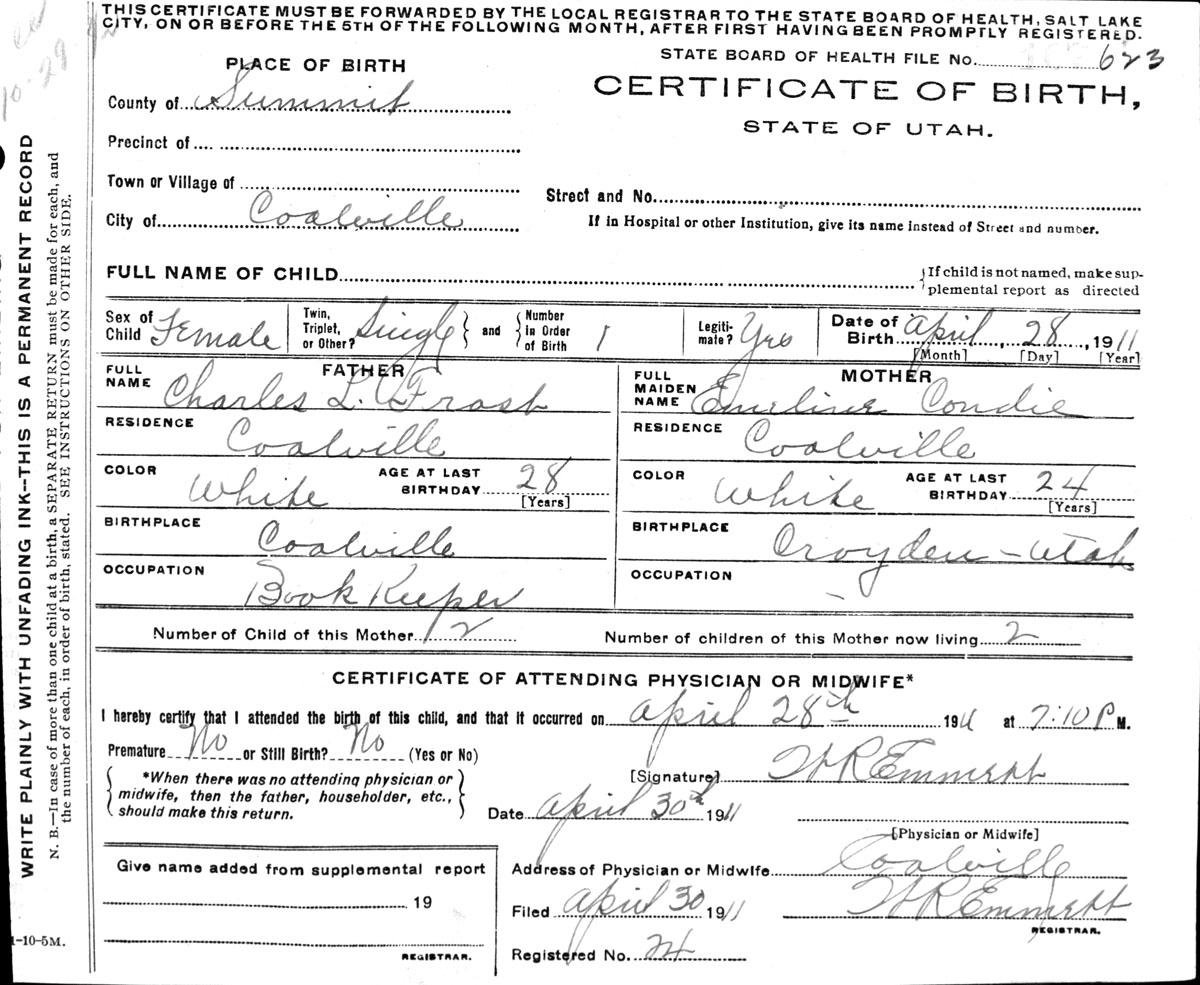 THIS CERTIFICATE MUST BE FORWARDED BY THE LOCAL REGISTRAR TO THE STATE BOARD OF HEALTH, SALT LAKE
CITY, ON OR BEFORE THE 5TH OF THE FOLLOWING MONTH, AFTER FIRST HAVING BEEN PROMPTLY REGISTERED.
STATE BOARD OF HEALTH FILE No. 623
PLACE OF BIRTH
CERTIFICATE OF BIRTH,
STATE OF UTAH.
County of Summit
Precinct of
Town or Village of
Street and No.
City of Coalville
If in Hospital or other Institution, give its name instead of Street and number.
FULL NAME OF CHILD
If child is not named, make sup-
plemental report as directed
Sex of Child Female
Twin, Triplet, or Other? Single
and Number in Order of Birth 1
Legiti-mate? Yes
Date of Birth April 28, 1911
[Month] [Day] [Year]
FATHER
FULL NAME Charles L. Frost
RESIDENCE Coalville
COLOR White AGE AT LAST BIRTHDAY 28 [Years]
BIRTHPLACE Coalville
OCCUPATION Book Keeper
MOTHER
FULL MAIDEN NAME Emeline Condie
RESIDENCE Coalville
COLOR White AGE AT LAST BIRTHDAY 24 [Years]
BIRTHPLACE Croyden - Utah
OCCUPATION -
Number of Child of this Mother 2 Number of children of this Mother now living 2
CERTIFICATE OF ATTENDING PHYSICIAN OR MIDWIFE*
I hereby certify that I attended the birth of this child, and that it occurred on April 28th 1911 at 7:10 P M.
Premature No or Still Birth? No (Yes or No)
*When there was no attending physician or
midwife, then the father, householder, etc.,
should make this return.
[Signature] H R Emmett
Date April 30th 1911
[Physician or Midwife]
Give name added from supplemental report
19
REGISTRAR.
Address of Physician or Midwife Coalville
Filed April 30 1911 H R Emmett
REGISTRAR.
Registered No. 24
WRITE PLAINLY WITH UNFADING INK--THIS IS A PERMANENT RECORD
N. B.—In case of more than one child at a birth, a SEPARATE RETURN must be made for each, and
the number of each, in order of birth, stated. SEE INSTRUCTIONS ON OTHER SIDE.
1-10-5M.